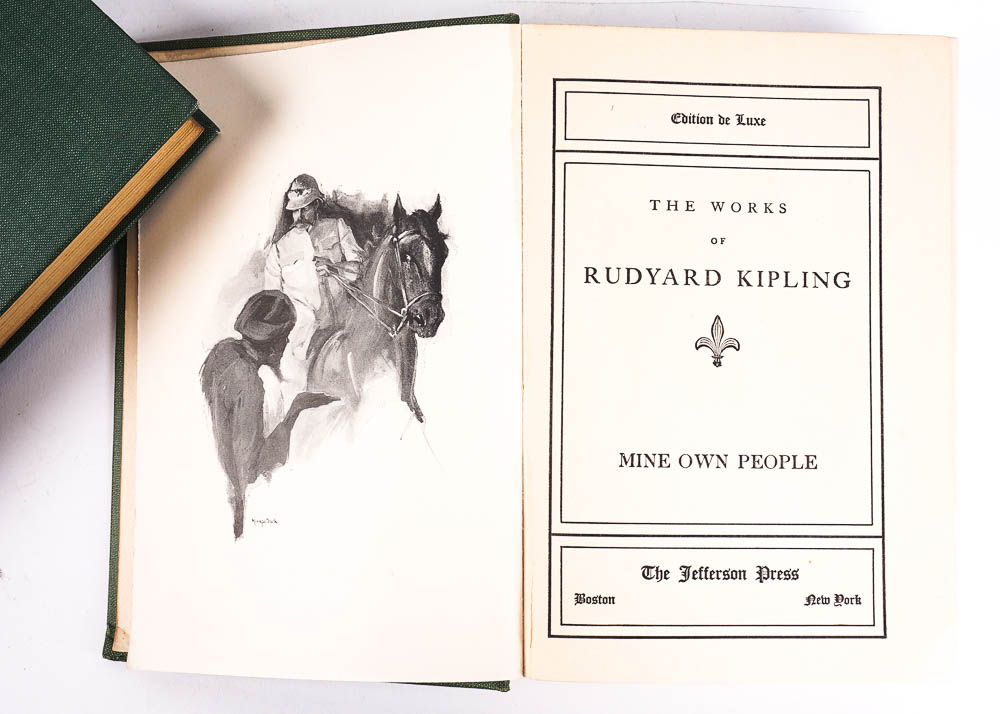 Edition de Luxe
THE WORKS
OF
RUDYARD KIPLING
MINE OWN PEOPLE
The Jefferson Press
Boston New York